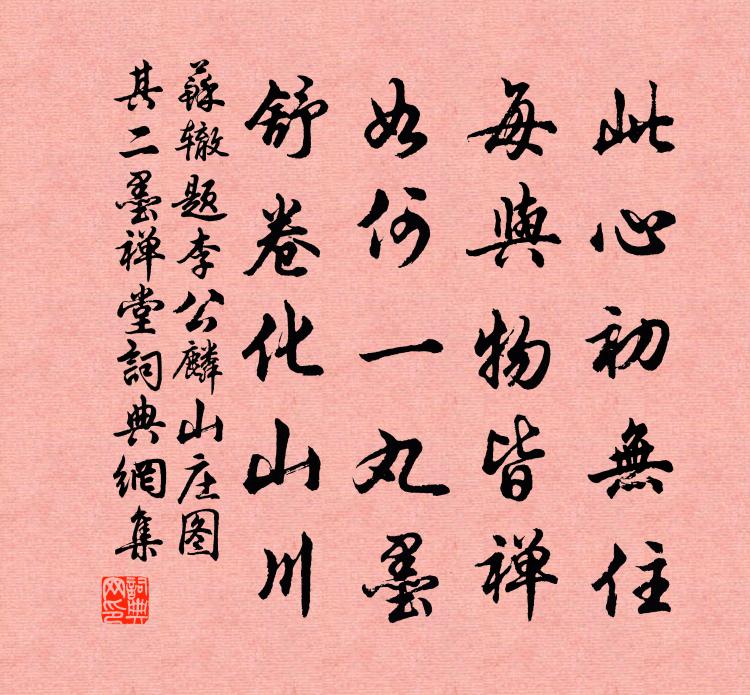 此心初無住
每與物皆禅
如何一丸墨
舒卷化山川
蘇辙题李公麟山庄图
其二墨禅堂詞典網集
詞典
网印